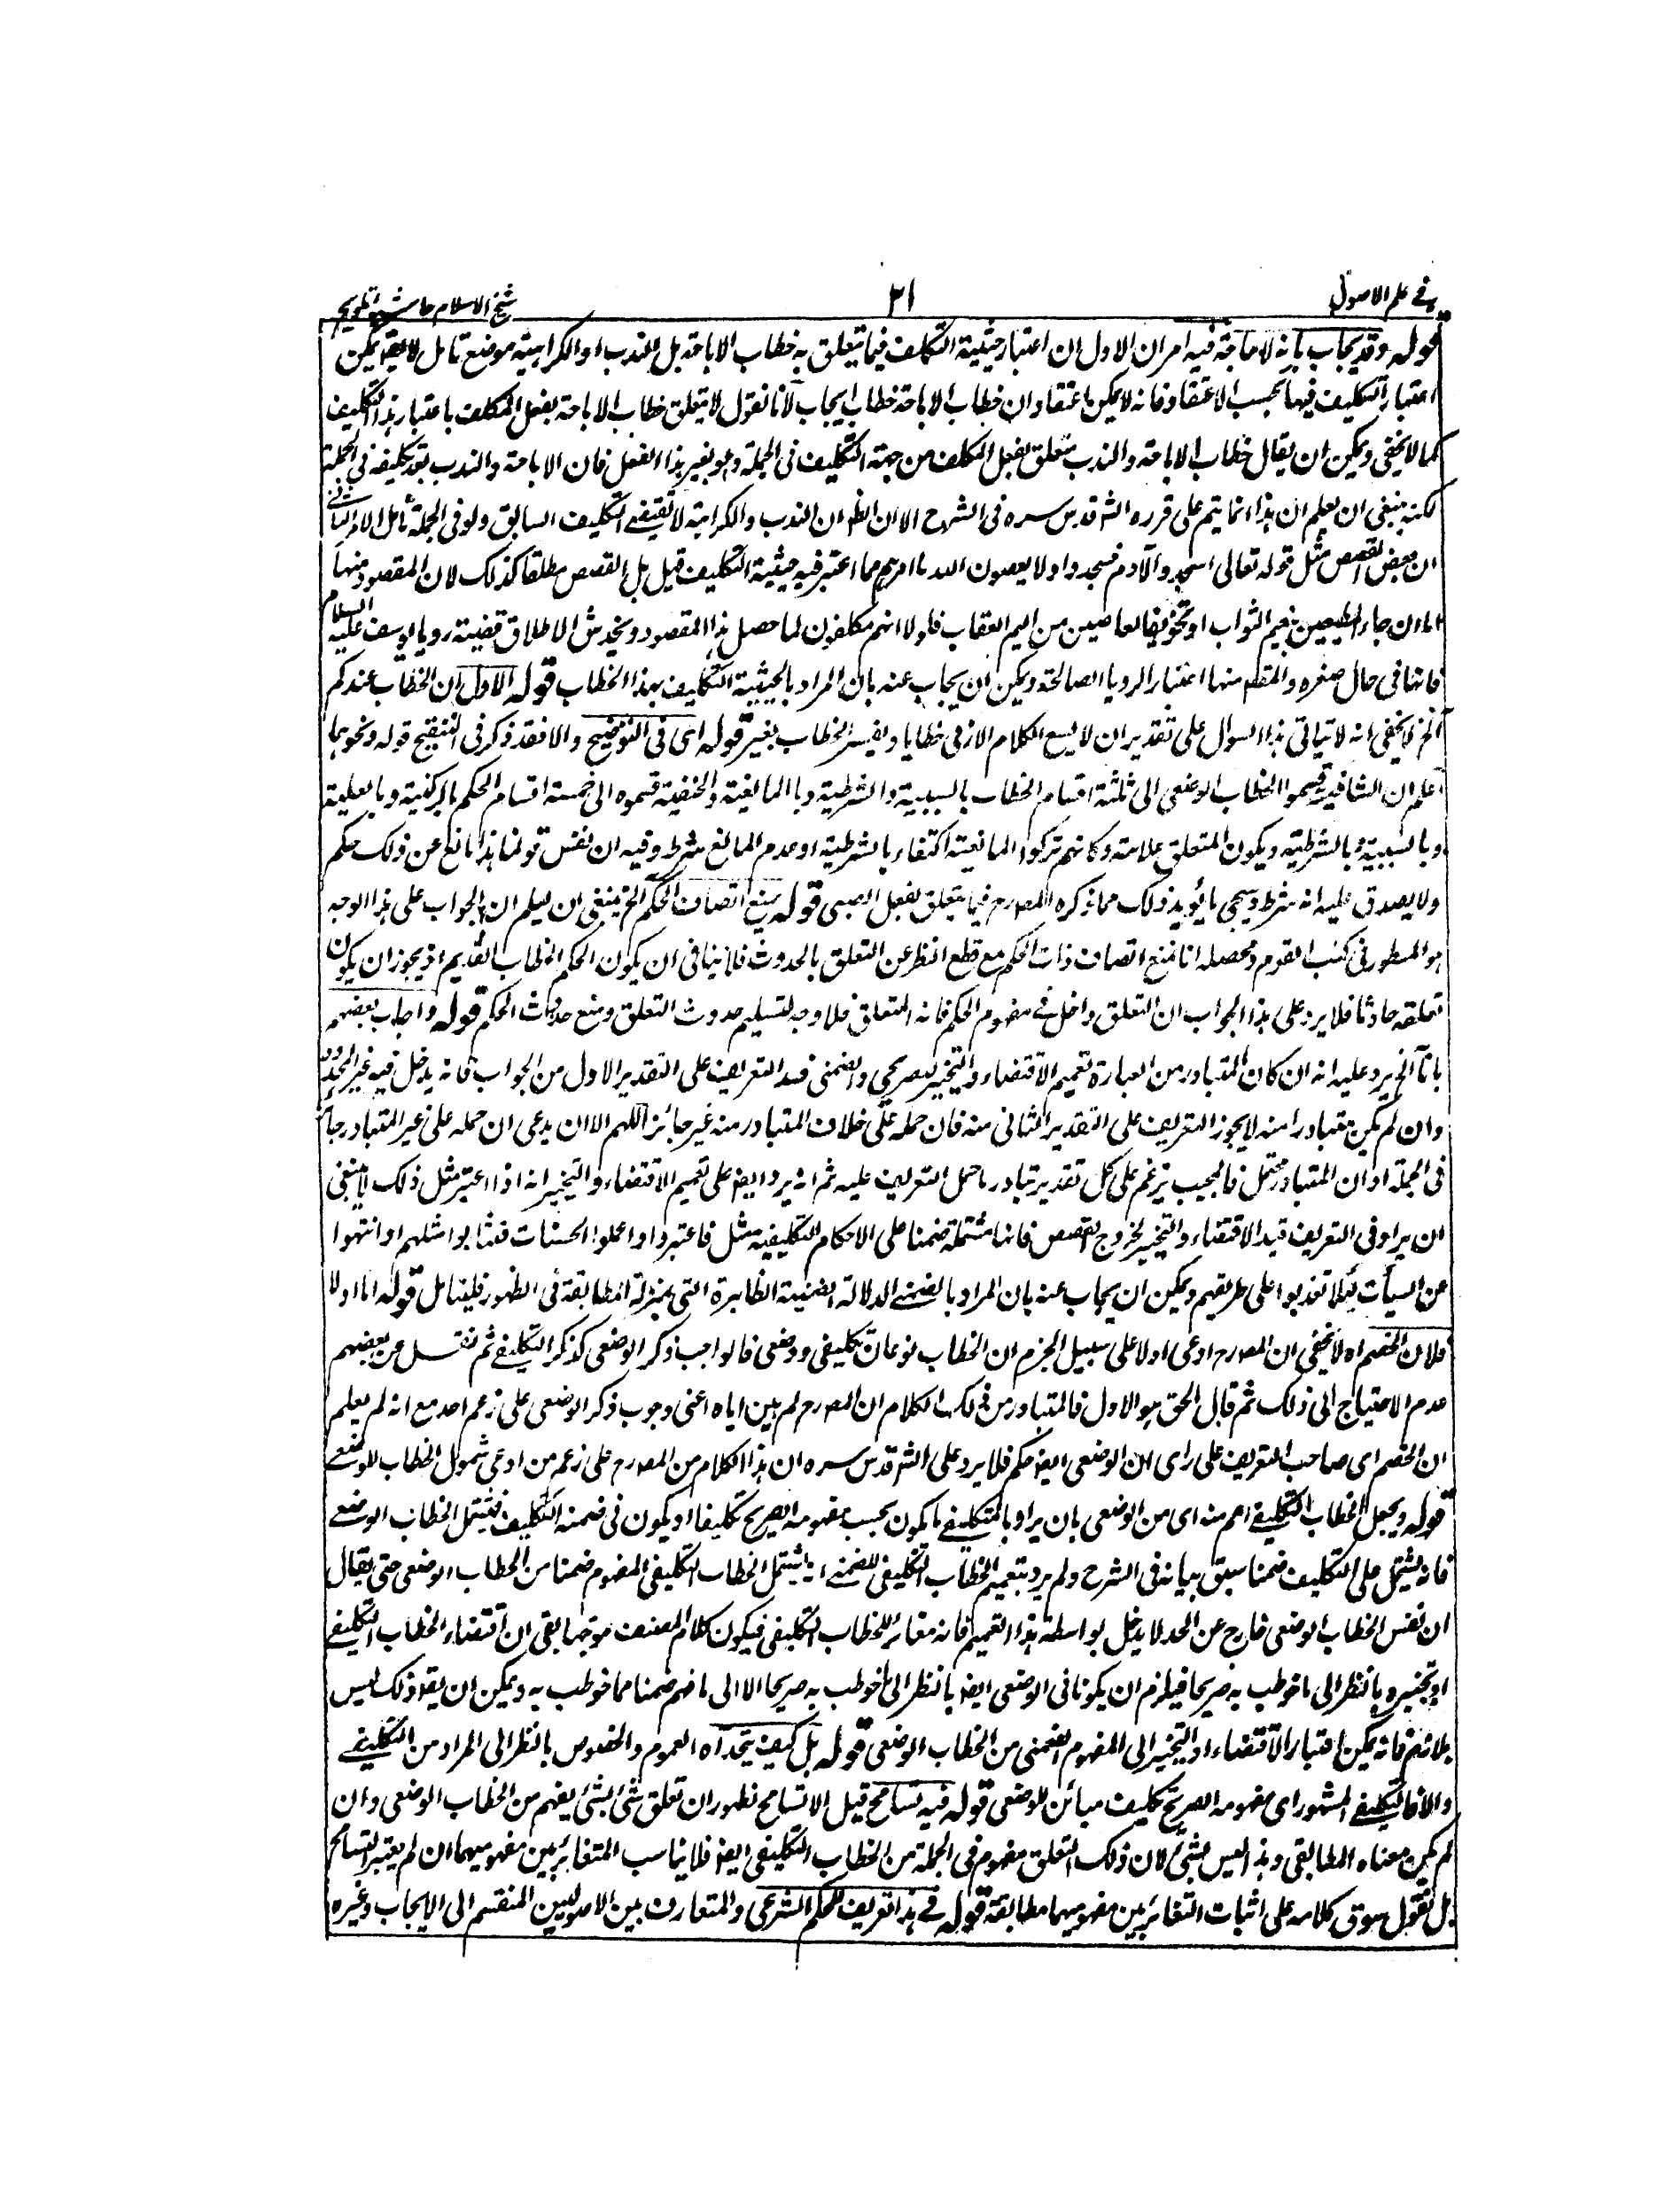 في علم الاصول
٢١
شيخ الاسلام حاشية تلويح
قوله وقد يجاب بانه لا حاجة فيه امران الاول ان اعتبار حيثية التكليف فيما يتعلق به خطاب الاباحة بل الندب او الكراهية موضع تامل لا يقه يمكن
اعتبار التكليف فيها بحسب الاعتقاد فانه لا يمكن اعتقاد ان خطاب الاباحة خطاب ايجاب لانا نقول لا يتعلق خطاب الاباحة بفعل المكلف باعتبار هذا التكليف
كما لا يخفى ويمكن ان يقال خطاب الاباحة والندب متعلق بفعل المكلف من جهة التكليف فى الجملة وهو بغير هذا الفعل فان الاباحة والندب بعد تكليفه فى الجملة
لكنه ينبغى ان يعلم ان هذا انما يتم على قرره الشه قدس سره فى الشرح الا ان الظه ان الندب والكراهية لا تقتضے التكليف السابق ولو فى الجملة تأمل الامر الثانى
ان بعض القصص مثل قوله تعالى اسجدوا لآدم فسجدوا ولا يعصون الله ما امرهم مما اعتبر فيه حيثية التكليف قيل بل القصص مطلقا كذلك لان المقصود منها
اما ان جاء المطيعين بنعيم الثواب او تخويف العاصيين من اليم العقاب فلولا انهم مكلفون لما حصل هذا المقصود ويخدش الاطلاق قضية رويا يوسف عليه السلام
فانها فى حال صغره والمقصه منها اعتبار الرويا الصالحة ويمكن ان يجاب عنه بان المراد بالحيثية التكليف بهذا الخطاب قوله الاول ان الخطاب عندكم
آلخ لا يخفى انه لا يتاتى هذا السوال على تقدير ان لا يسمع الكلام الازلى خطابا ويفسر الخطاب بغير قوله اى فى التوضيح والا فقد ذكر فى التنقيح قوله ونحوهما
اعلم ان الشافية قسموا الخطاب الوضعى الى ثلثة اقسام الخطاب بالسببية والشرطية وبا المانعية والحنفية قسموه الى خمسة اقسام الحكم بالركنية وبالعلية
وبالسببية وبالشرطية وبكون المتعلق علامة وكانهم تركوا المانعية اكتفاء بالشرطية او عدم المانع شرط وفيه ان نفس قولنا هذا مانع عن ذلك حكم
ولا يصدق عليه انه شرط وسيجى ما يؤيد ذلك مما ذكره المصه رح فيما يتعلق بفعل الصبى قوله يمنع اتصاف الحكم آلخ ينبغى ان يعلم ان الجواب على هذا الوجه
هو المسطور فى كتب القوم ومحصله انا نمنع اتصاف ذات الحكم مع قطع النظر عن التعلق بالحدوث فلا ينافى ان يكون الحكم الخطاب القديم اذ يجوز ان يكون
تعلقه حادثا فلا يرد على هذا الجواب ان التعلق داخل فے مفهوم الحكم فانه المتعلق فلا وجه لتسليم حدوث التعلق ومنع حدوث الحكم قوله واجاب بعضهم
بانا آلخ يرد عليه انه ان كان المتبادر من العبارة تعميم الاقتضاء والتخيير الصريحى والضمنى فسد التعريف على التقدير الاول من الجواب فانه يدخل فيه غير المحدود
وان لم يكن متبادرا منه لا يجوز التعريف على التقدير الثانى منه فان حمله على خلاف المتبادر منه غير جائز اللهم الا ان يدعى ان حمله على غير المتبادر جائز
فى الجملة او ان المتبادر محتمل فالمجيب يزعم على كل تقدير تبادر ما حمل التعريف عليه ثم انه يرد ايضه على تعميم الاقتضاء والتخيير انه اذا اعتبر مثل ذلك لا ينبغى
ان يراد فى التعريف قيد الاقتضاء والتخيير لخروج القصص فانها مشتملة ضمنا على الاحكام التكليفية مثل فاعتبروا واعملوا الحسنات فتثابوا مثلهم او انتهوا
عن السيأت لئلا تعذبوا على طريقهم ويمكن ان يجاب عنه بان المراد بالضمنے الدلالة الضمنية الظاهرة التى بمنزلة المطابقة فى الظهور فليتامل قوله اما اولا
فلان الخصم اه لا يخفى ان المصه رح ادعى اولا على سبيل الجزم ان الخطاب نوعان تكليفى ووضعى فالواجب ذكر الوضعى كذكر التكليفے ثم نقل عن بعضهم
عدم الاحتياج الى ذلك ثم قال الحق هو الاول فالمتبادر من ذلك الكلام ان المصه رح لم يبين اياه اعنى وجوب ذكر الوضعى على زعم احد مع انه لم يعلم
ان الخصم اى صاحب التعريف على راى ان الوضعى ايضه حكم فلا يرد على الشه قدس سره ان هذا الكلام من المصه رح على زعمه من ادعى شمول الخطاب للوضعے
قوله ويجعل الخطاب التكليفے اعم منه اى من الوضعى بان يراد بالتكليفے ما يكون بحسب مفهومه الصريح تكليفا او يكون فى ضمنه التكليف فيشمل الخطاب الوضعے
فانه يشتمل على التكليف ضمنا سبق بيانه فى الشرح ولم يرد بتعميم الخطاب التكليفى للضمنے ما يشتمل الخطاب التكليفى المفهوم ضمنا من الخطاب الوضعى حتى يقال
ان نفس الخطاب الوضعى خارج عن الحد لا يدخل بواسطة هذا التعميم فانه مغائر للخطاب التكليفى فيكون كلام المصنف موجها بقى ان اقتضاء الخطاب التكليفے
او تخييره بالنظر الى ما خوطب به صريحا فيلزم ان يكونا فى الوضعى ايضه بالنظر الى ما خوطب به صريحا لا الى ما فهم ضمنا مما خوطب به ويمكن ان يقه ذلك ليس
بلازم فانه يمكن اعتبار الاقتضاء او التخيير الى المفهوم الضمنى من الخطاب الوضعى قوله بل كيف يتحد اه العموم والخصوص بالنظر الى المراد من التكليفے
والا فالتكليفے المشهور اى مفهومه الصريح تكليف مبائن للوضعى قوله فيه تسامح قيل لا تسامح لظهور ان تعلق شئ بشئ يفهم من الخطاب الوضعى وان
لم يكن معناه المطابقى وهذا ليس بشئ لان ذلك التعلق مفهوم فى الجملة من الخطاب التكليفى ايضه فلا يناسب المتغائر بين مفهوميهما ان لم يعتبر التسامح
بل نقول سوق كلامه على اثبات التغائر بين مفهوميهما مطابقة قوله فے هذا تعريف للحكم الشرعى والمتعارف بين الاصوليين المنقسم الى الايجاب وغيره